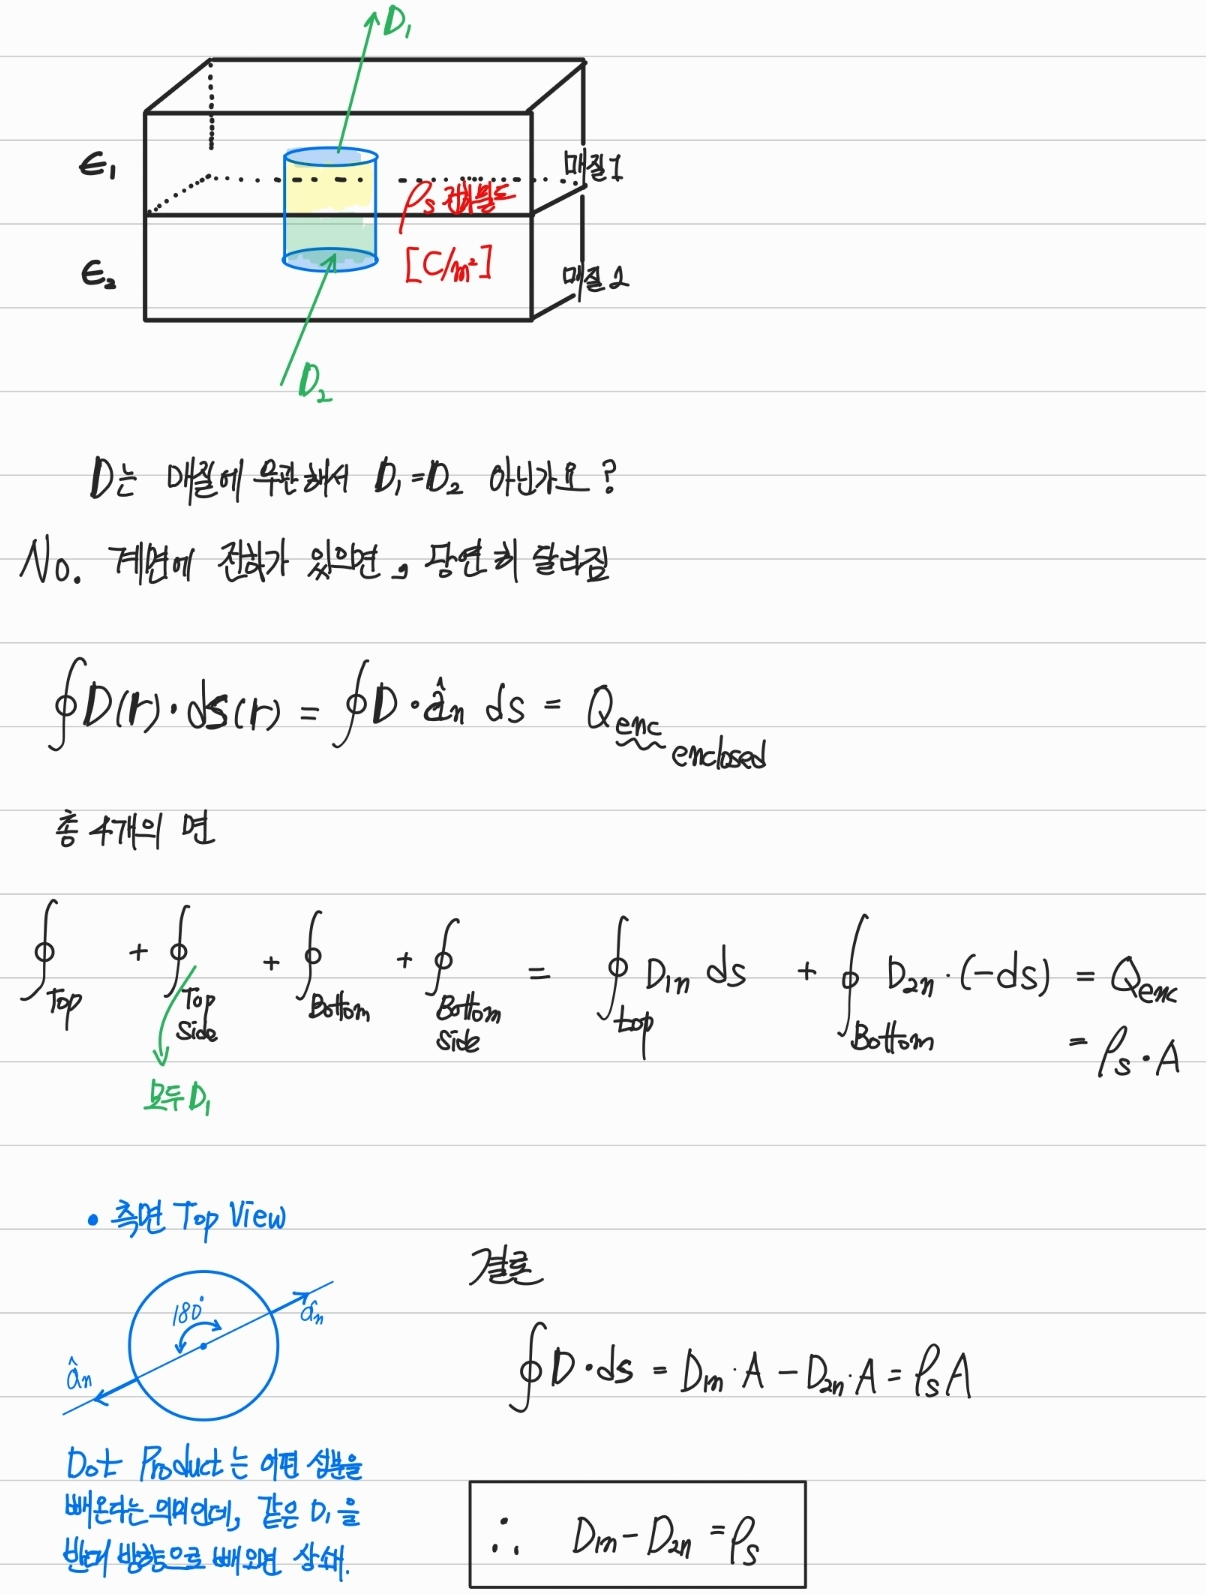 D₁
ϵ₁
매질1
ρs 전하밀도
[C/m²]
ϵ₂
매질2
D₂
D는 매질에 무관해서 D₁=D₂ 아닌가요?
No. 계면에 전하가 있으면, 당연히 달라짐
∮D(r)·ds(r) = ∮D·âₙ ds = Q_enc enclosed
총 4개의 면
∮_Top + ∮_Top side + ∮_Bottom + ∮_Bottom side = ∮_top D₁ₙ ds + ∮_Bottom D₂ₙ·(-ds) = Q_enc
= ρs·A
모두 D₁
• 측면 Top View
180°
âₙ
âₙ
Dot Product는 어떤 성분을
빼온다는 의미인데, 같은 D₁을
반대 방향으로 빼오면 상쇄.
결론
∮D·ds = D₁ₙ·A - D₂ₙ·A = ρsA
∴ D₁ₙ - D₂ₙ = ρs